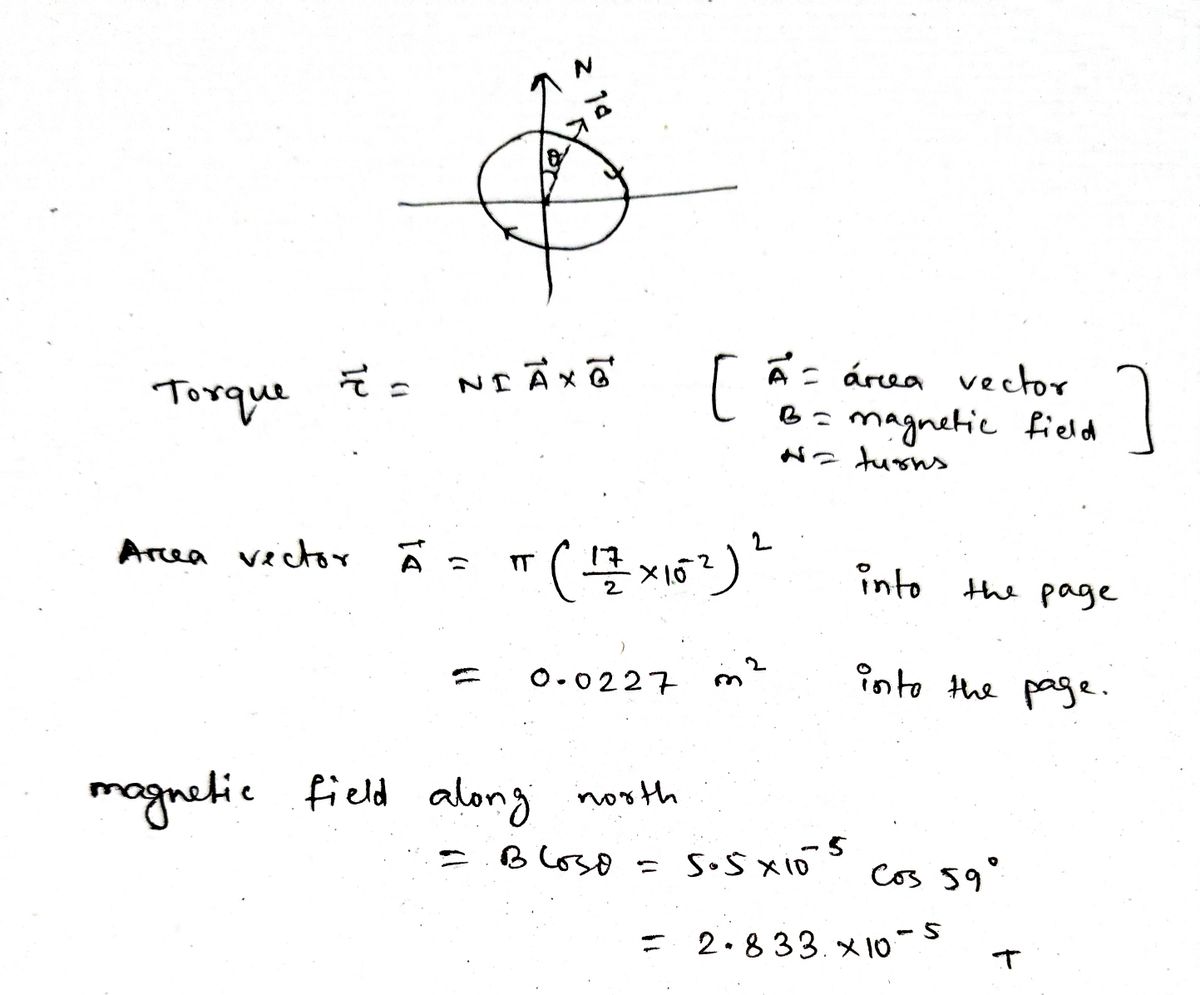 N
B⃗
θ
Torque τ⃗ = NI A⃗ × B⃗ [ A⃗ = área vector
B = magnetic field ]
N = turns
Area vector A⃗ = π ( 17/2 ×10⁻² )² into the page
= 0.0227 m² into the page.
magnetic field along north
= B Cosθ = 5.5 ×10⁻⁵ Cos 59°
= 2.833 ×10⁻⁵ T